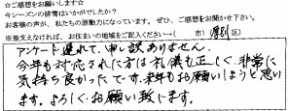 ☆ご感想をお願いします☆
今シーズンの排雪はいかがでしたか?
お客様の声が、私たちの原動力になっています。ぜひ、ご感想をお聞かせ下さい。
※差支えなければ、お住まいの地域をご記入ください→( 市) 厚別 区)
アンケート遅れて、申し訳ありません。
今年も対応された方は礼儀も正しく、非常に
気持ち良かったです。来年もお願いしようと思い
ます。よろしくお願い致します。